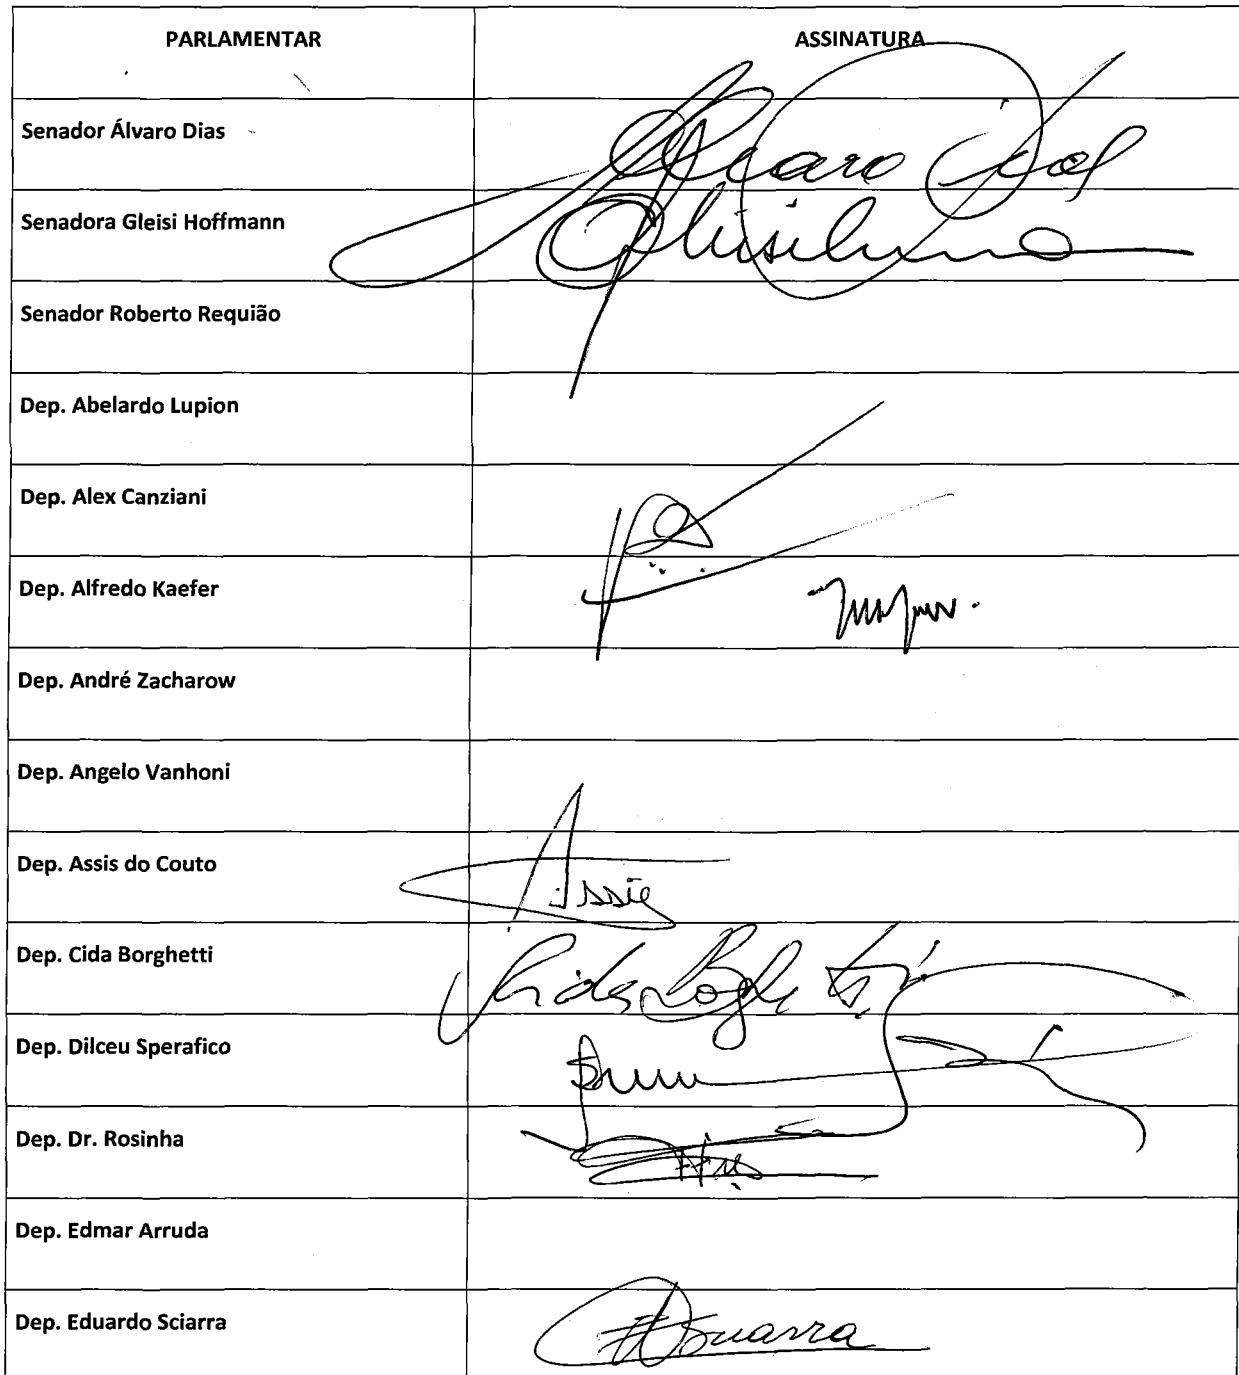 PARLAMENTAR ASSINATURA
Senador Álvaro Dias Alvaro Dias
Senadora Gleisi Hoffmann
Senador Roberto Requião
Dep. Abelardo Lupion
Dep. Alex Canziani
Dep. Alfredo Kaefer
Dep. André Zacharow
Dep. Angelo Vanhoni
Dep. Assis do Couto Assis
Dep. Cida Borghetti Cida Borghetti
Dep. Dilceu Sperafico
Dep. Dr. Rosinha
Dep. Edmar Arruda
Dep. Eduardo Sciarra